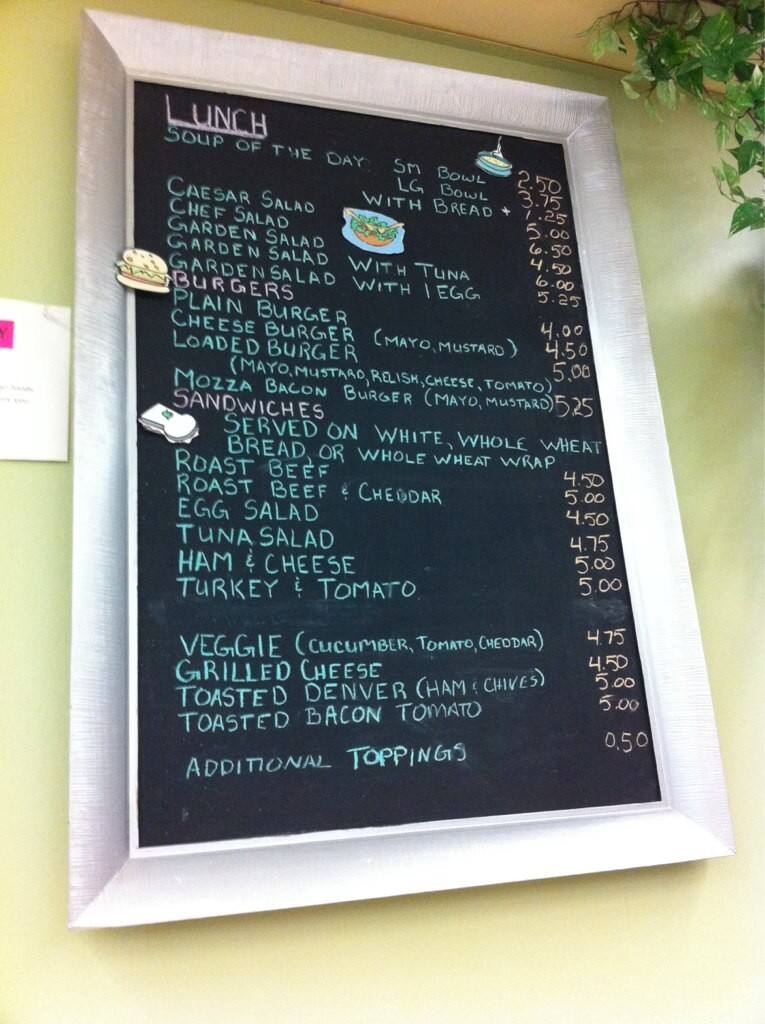 LUNCH
SOUP OF THE DAY: SM BOWL 2.50
LG BOWL 3.75
WITH BREAD + 1.25
CAESAR SALAD 5.00
CHEF SALAD 6.50
GARDEN SALAD 4.50
GARDEN SALAD WITH TUNA 6.00
GARDEN SALAD WITH 1 EGG 5.25
BURGERS
PLAIN BURGER 4.00
CHEESE BURGER (MAYO, MUSTARD) 4.50
LOADED BURGER 5.00
(MAYO, MUSTARD, RELISH, CHEESE, TOMATO)
MOZZA BACON BURGER (MAYO, MUSTARD) 5.25
SANDWICHES
SERVED ON WHITE, WHOLE WHEAT
BREAD, OR WHOLE WHEAT WRAP
ROAST BEEF 4.50
ROAST BEEF & CHEDDAR 5.00
EGG SALAD 4.50
TUNA SALAD 4.75
HAM & CHEESE 5.00
TURKEY & TOMATO 5.00
VEGGIE (CUCUMBER, TOMATO, CHEDDAR) 4.75
GRILLED CHEESE 4.50
TOASTED DENVER (HAM & CHIVES) 5.00
TOASTED BACON TOMATO 5.00
ADDITIONAL TOPPINGS 0.50